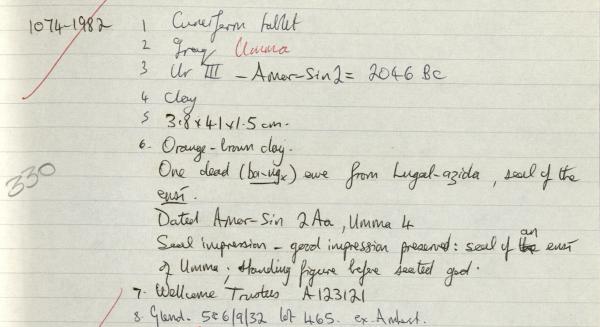 1074-1982 1 Cuneiform tablet
2 Iraq Umma
3 Ur III - Amar-Sin 2 = 2046 BC
4 Clay
5 3.8 x 4.1 x 1.5 cm.
6. Orange-brown clay.
One dead (ba-ugx) ewe from Lugal-azida, seal of the
ensi.
330
Dated Amar-Sin 2 Aa, Umma 4
Seal impression - good impression preserved: seal of an ensi
of Umma; standing figure before seated god.
7. Wellcome Trustees A123121
8. Glend. 5&6/9/32 lot 465. ex. Amherst.